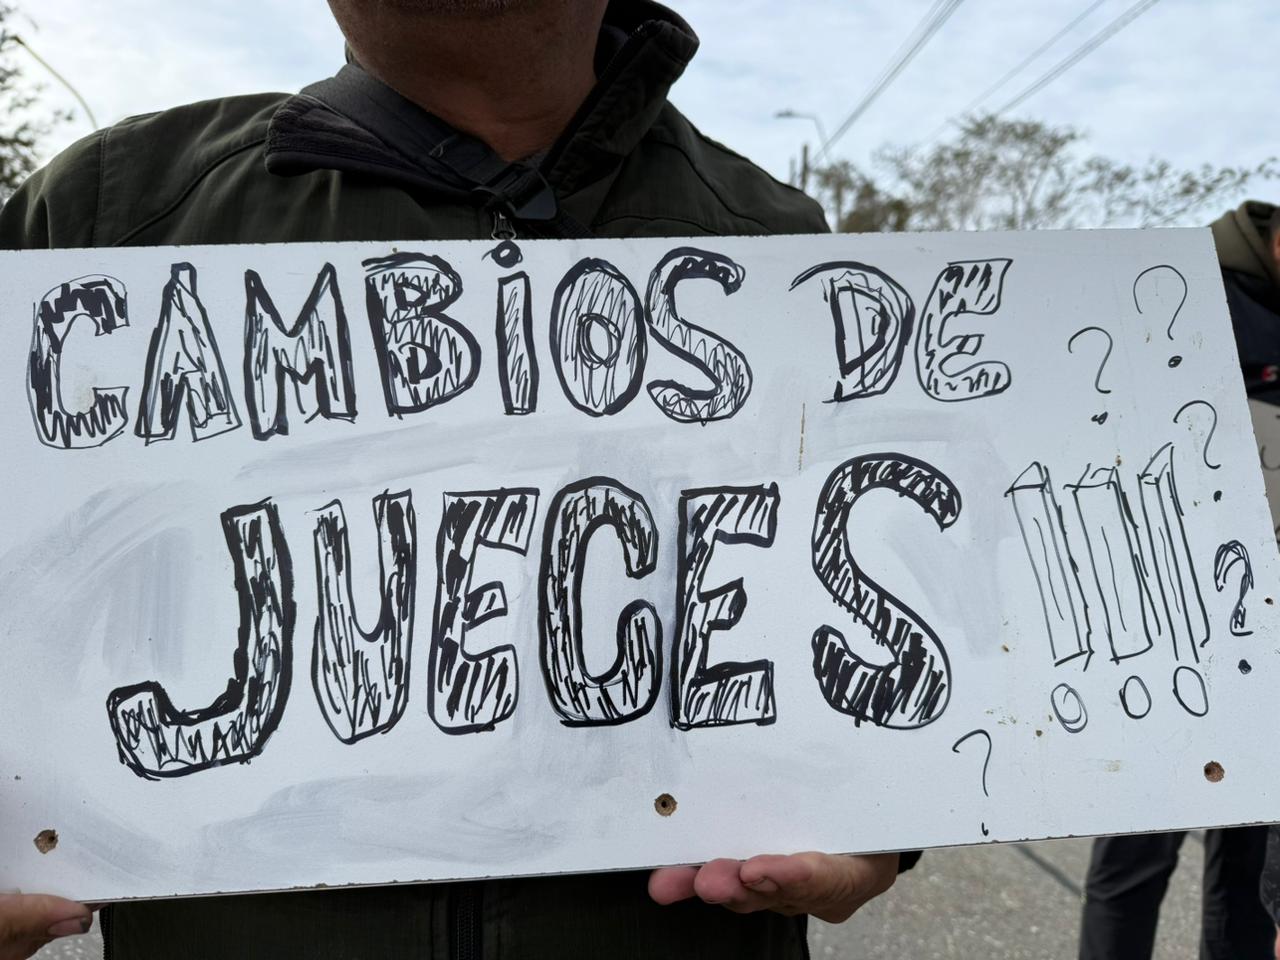 CAMBiOS DE ? ?
JUECES !!! ? ?
?